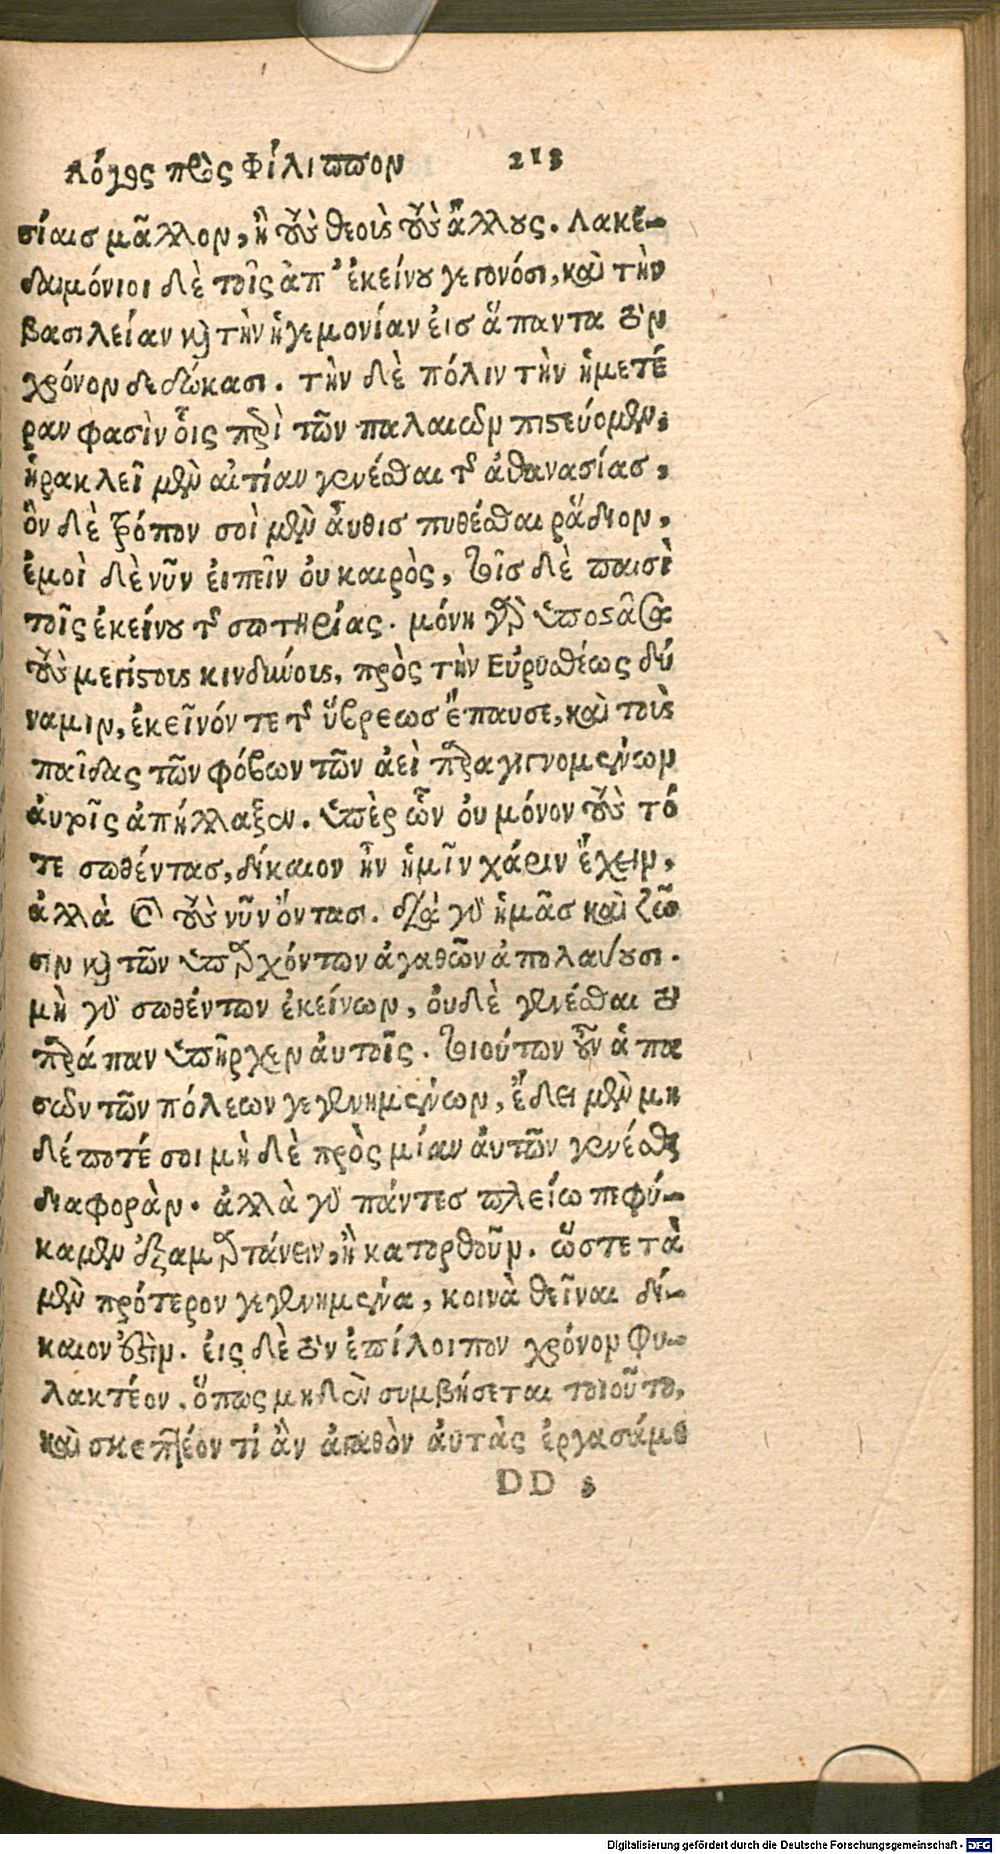 Λόγος πρὸς Φίλιππον 213
σίαις μᾶλλον, ἢ τοὺς θεοὺς τοὺς ἄλλους. Λακε-
δαιμόνιοι δὲ τοῖς ἀπ' ἐκείνου γεγονόσι, καὶ τὴν
βασιλείαν καὶ τὴν ἡγεμονίαν εἰς ἅπαντα τὸν
χρόνον δεδώκασι. τὴν δὲ πόλιν τὴν ἡμετέ
ραν φασὶν οἷς περὶ τῶν παλαιῶν πιστεύομεν,
ἡρακλεῖ μὲν αἰτίαν γενέσθαι τῆς ἀθανασίας,
ὃν δὲ τρόπον σοὶ μὲν αὖθις πυθέσθαι ῥᾴδιον,
ἐμοὶ δὲ νῦν εἰπεῖν οὐ καιρὸς, τοῖς δὲ παισὶ
τοῖς ἐκείνου τῆς σωτηρίας. μόνη γὰρ ὑποστᾶσα
τοὺς μεγίστους κινδύνους, πρὸς τὴν Εὐρυσθέως δύ
ναμιν, ἐκεῖνόν τε τῆς ὕβρεως ἔπαυσε, καὶ τοὺς
παῖδας τῶν φόβων τῶν ἀεὶ παραγιγνομένων
αὐτοῖς ἀπήλλαξεν. ὑπὲρ ὧν οὐ μόνον τοὺς τό
τε σωθέντας, δίκαιον ἦν ἡμῖν χάριν ἔχειν,
ἀλλὰ καὶ τοὺς νῦν ὄντας. διὰ γὰρ ἡμᾶς καὶ ζῶ
σιν καὶ τῶν ὑπαρχόντων ἀγαθῶν ἀπολαύουσι.
μὴ γὰρ σωθέντων ἐκείνων, οὐδὲ γενέσθαι τὸ
παράπαν ὑπῆρχεν αὐτοῖς. τοιούτων οὖν ἁπα
σῶν τῶν πόλεων γεγενημένων, ἔδει μὲν μη
δέποτέ σοι μηδὲ πρὸς μίαν αὐτῶν γενέσθαι
διαφορὰν. ἀλλὰ γὰρ πάντες πλείω πεφύ-
καμεν ἐξαμαρτάνειν, ἢ κατορθοῦν. ὥστε τὰ
μὲν πρότερον γεγενημένα, κοινὰ θεῖναι δί-
καιον ἐστὶν. εἰς δὲ τὸν ἐπίλοιπον χρόνον φυ-
λακτέον, ὅπως μηδὲν συμβήσεται τοιοῦτο,
καὶ σκεπτέον τί ἂν ἀγαθὸν αὐτὰς ἐργασάμε
DD 3
Digitalisierung gefördert durch die Deutsche Forschungsgemeinschaft - DFG